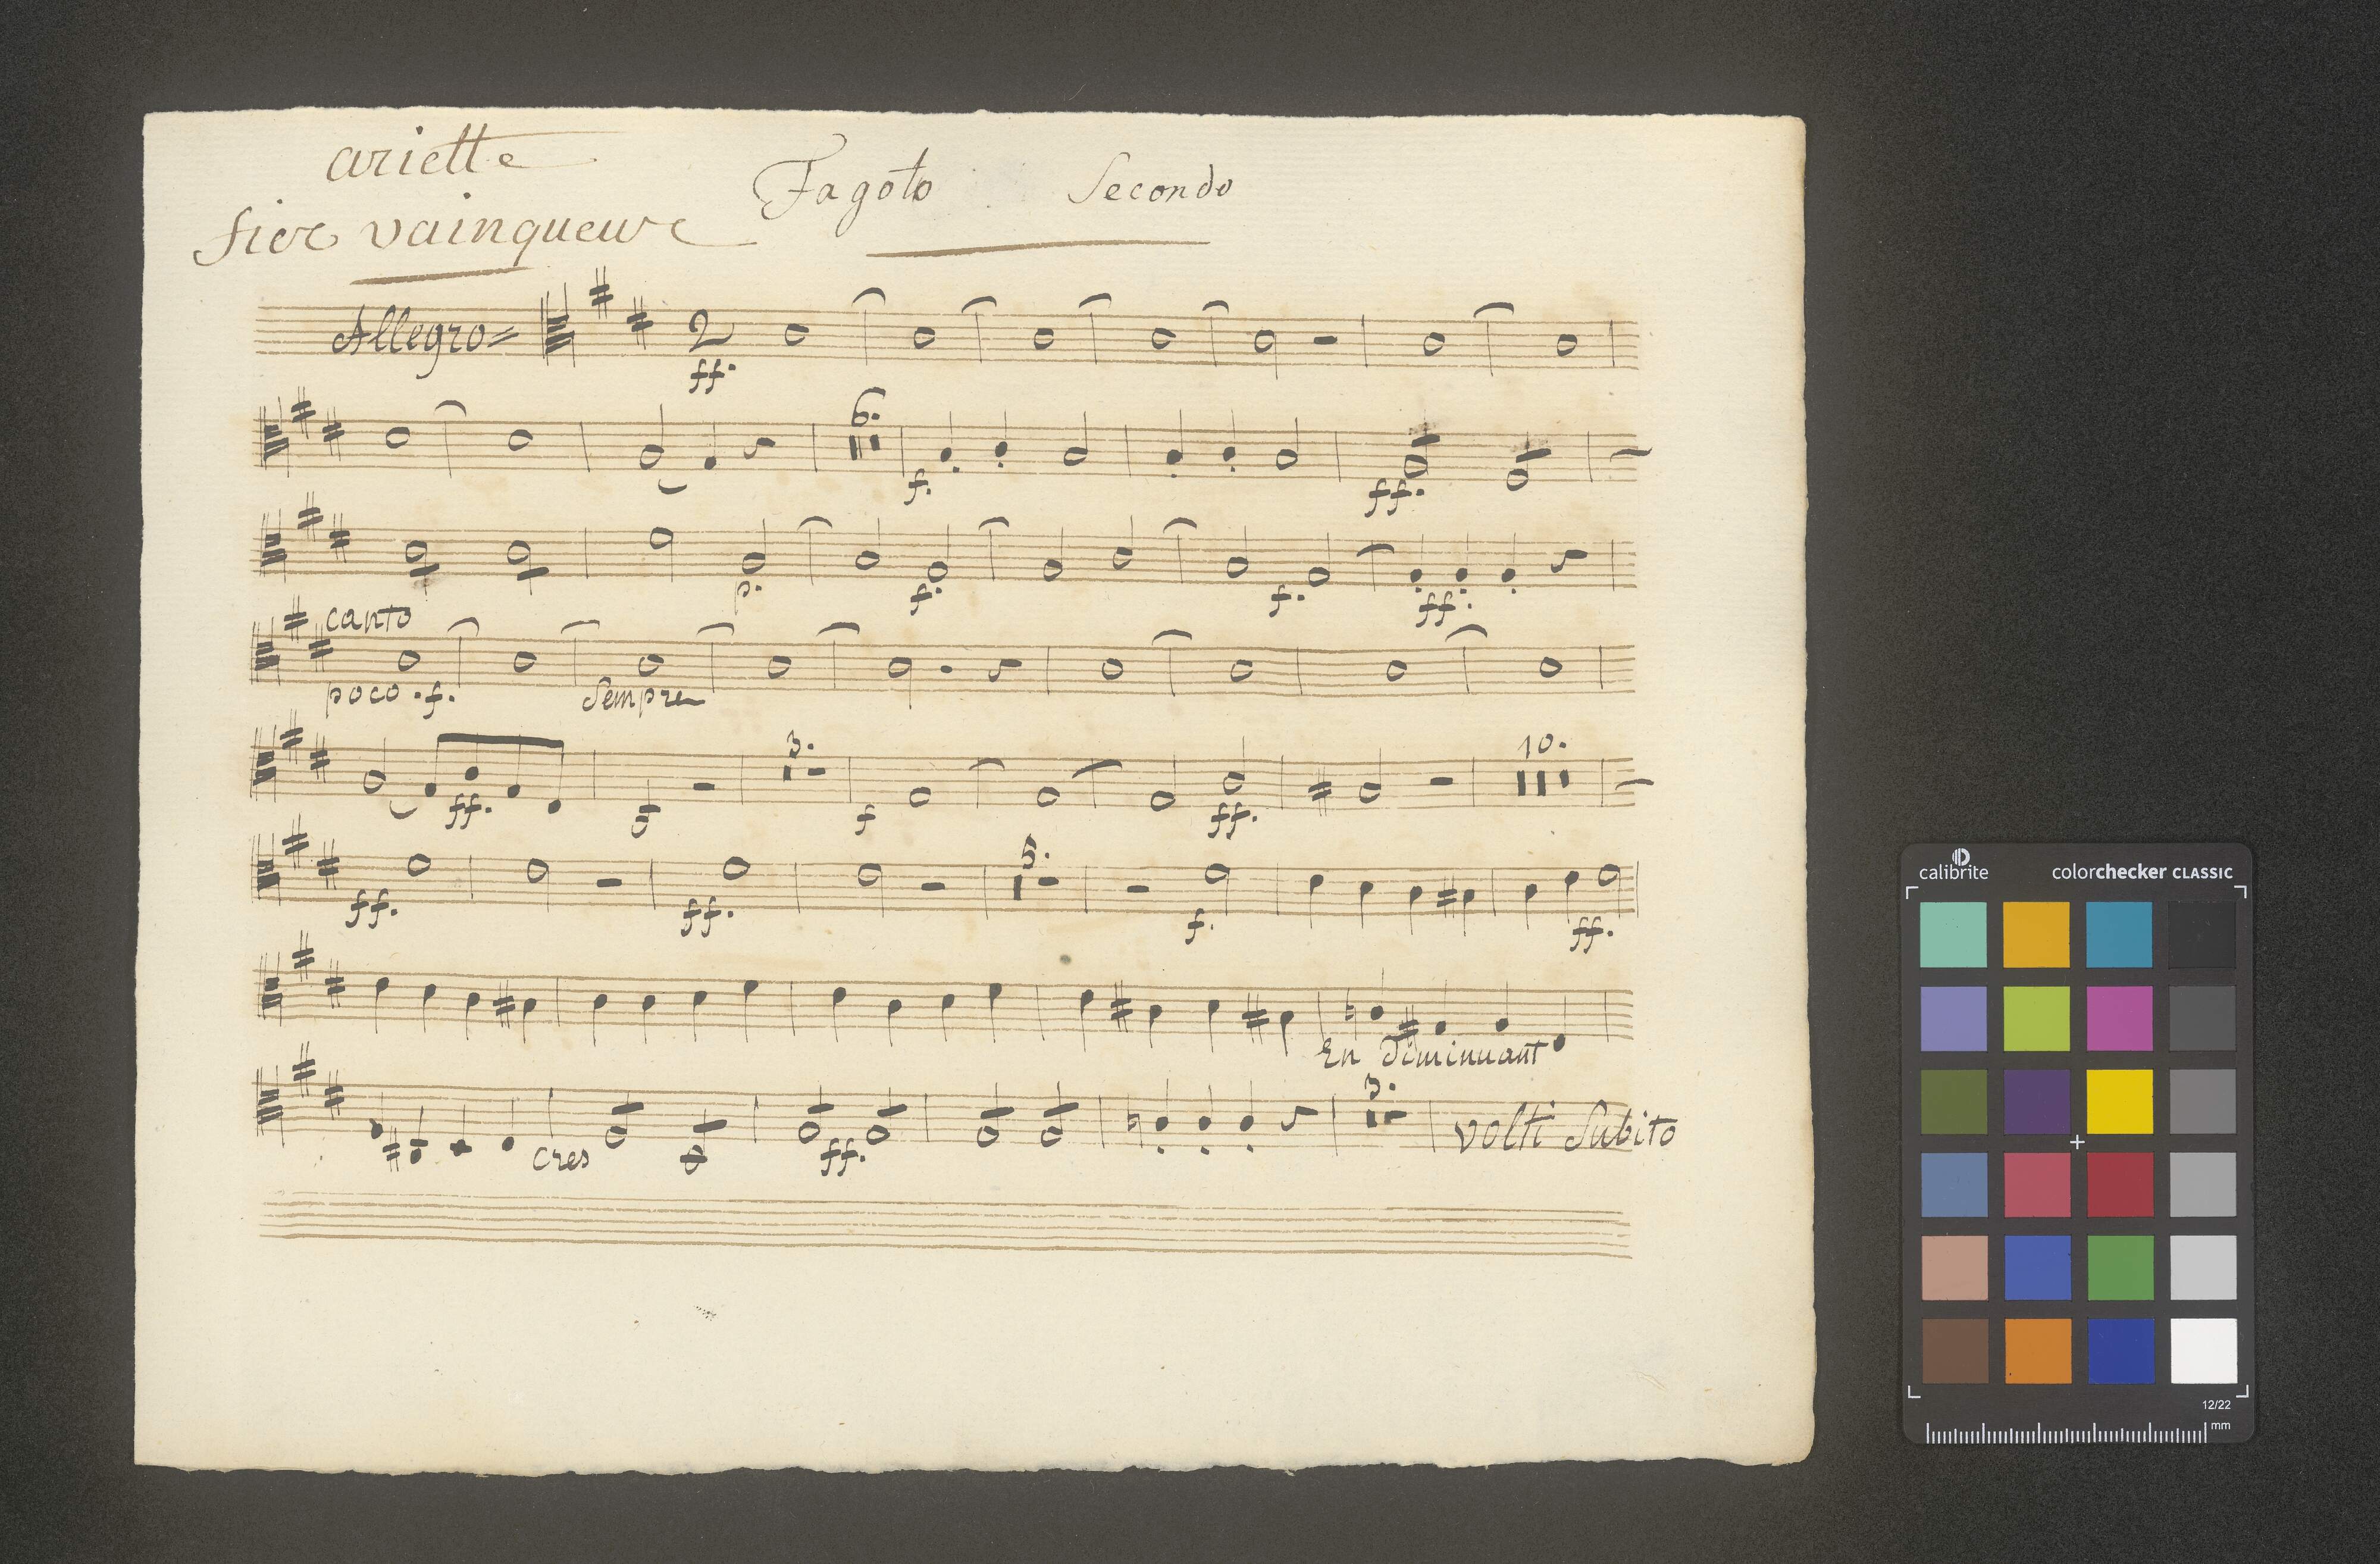 ariette
Fagoto Secondo
fier vainqueur
Allegro= 2
ff.
6.
f. ff.
p. f. f. ff.
canto
poco. f. Sempre
3. 10.
ff. f ff.
5.
ff. ff. f. ff.
En diminuant
3.
cres ff. volti Subito
calibrite colorchecker CLASSIC
12/22
mm